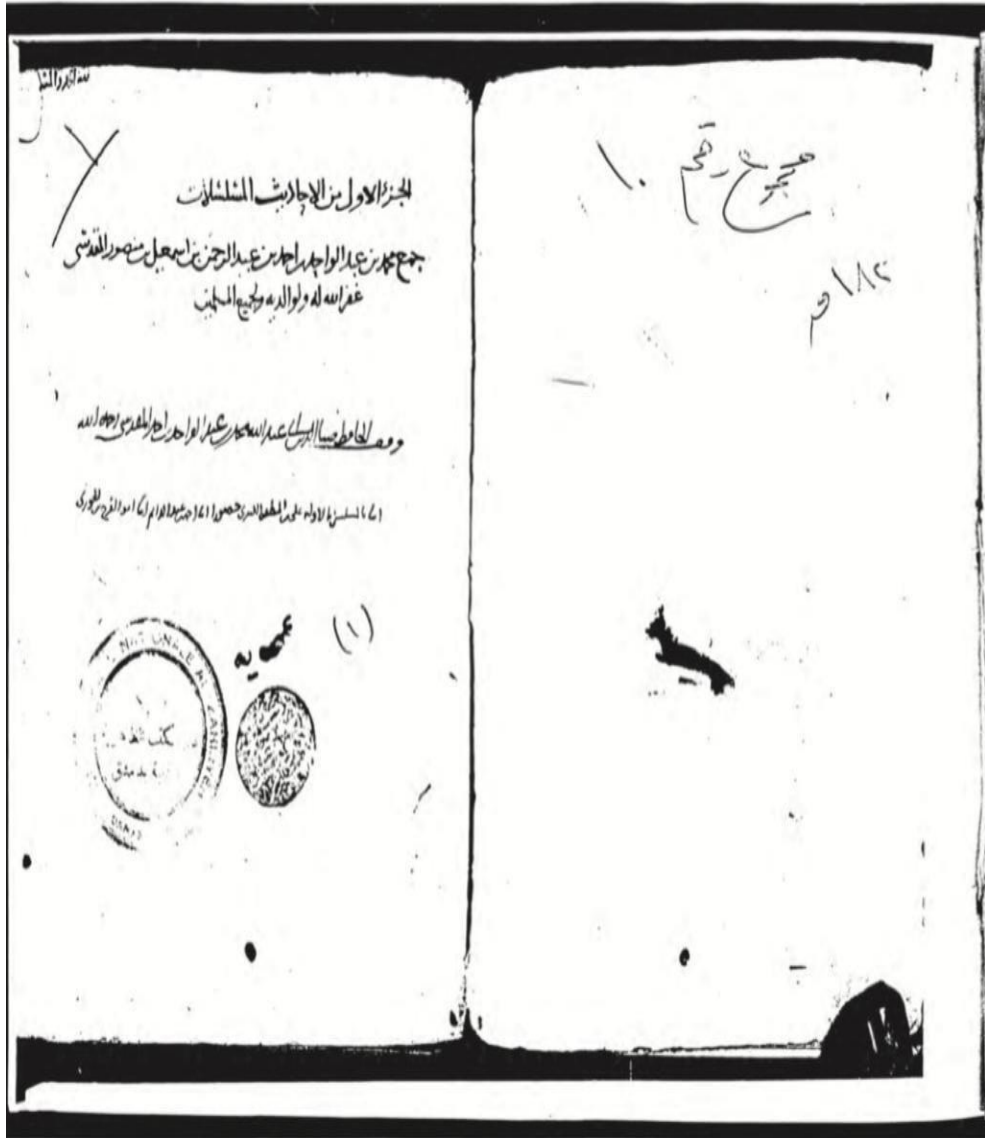 مجموع رقم ١٠
١٨٢ و
الجزء الاول من الاحاديث المسلسلات
جمع محمد بن عبد الواحد بن احمد بن عبد الرحمن بن اسمعيل بن منصور المقدسي
غفر الله له ولوالديه ولجميع المسلمين
وقف الحافظ ضيا الدين ابي عبد الله محمد بن عبد الواحد بن احمد المقدسي رحمه الله
عبد الدايم ابو الفرج بن الجوزي
(١)
عمريه
NATIONALE
بدمشق